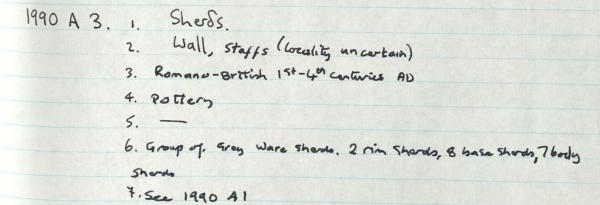 1990 A 3. 1. Sherds.
2. Wall, Staffs (locality uncertain)
3. Romano-British 1st-4th centuries AD
4. Pottery
5. —
6. Group of Grey Ware sherds. 2 rim sherds, 8 base sherds, 7 body
sherds
7. See 1990 A1